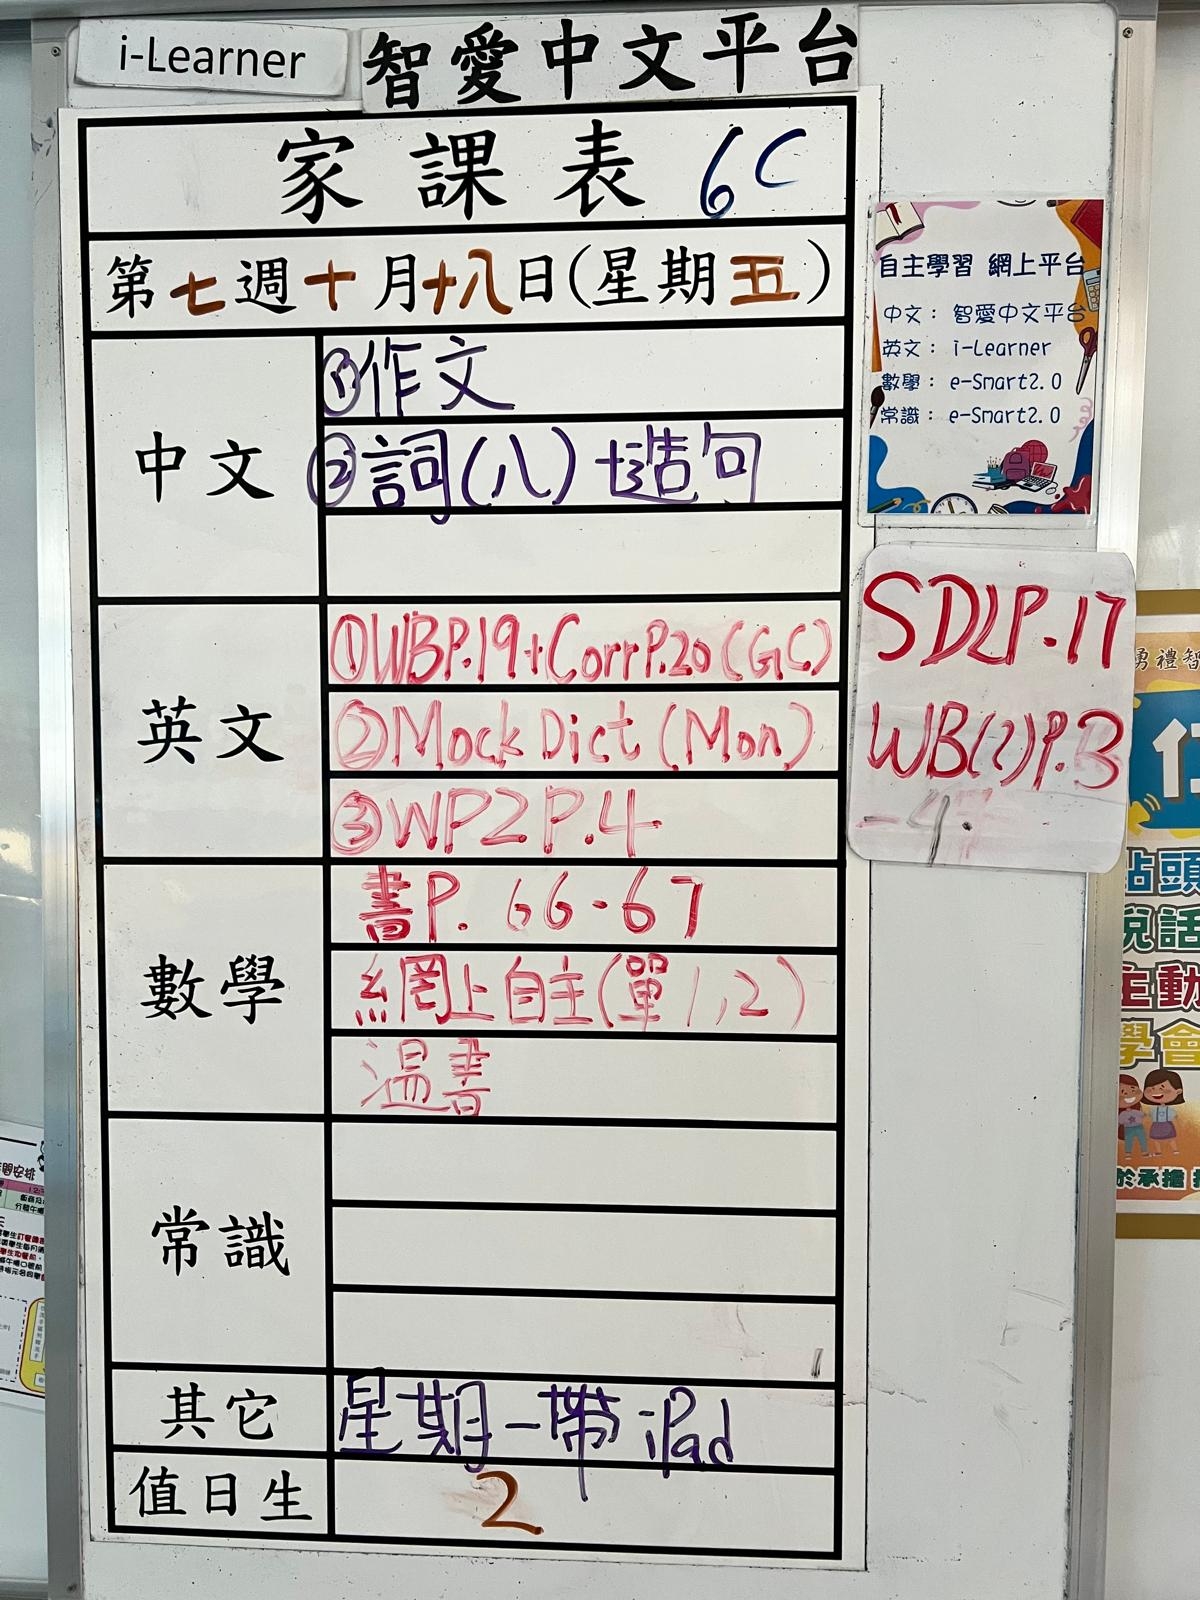 i-Learner 智愛中文平台
家課表 6C
第七週十月十八日(星期五)
中文
①作文
②詞(八)+造句
英文
①WBP.19+CorrP.20(GC)
②Mock Dict (Mon)
③WP2P.4
數學
書P. 66-67
網上自主(單1,2)
溫書
常識
其它
星期一帶iPad
值日生
2
自主學習 網上平台
中文： 智愛中文平台
英文： i-Learner
數學： e-Smart2.0
常識： e-Smart2.0
SDLP.17
WB(2)P.3
-4
勇禮智
點頭
說話
主動
學會
於承擔